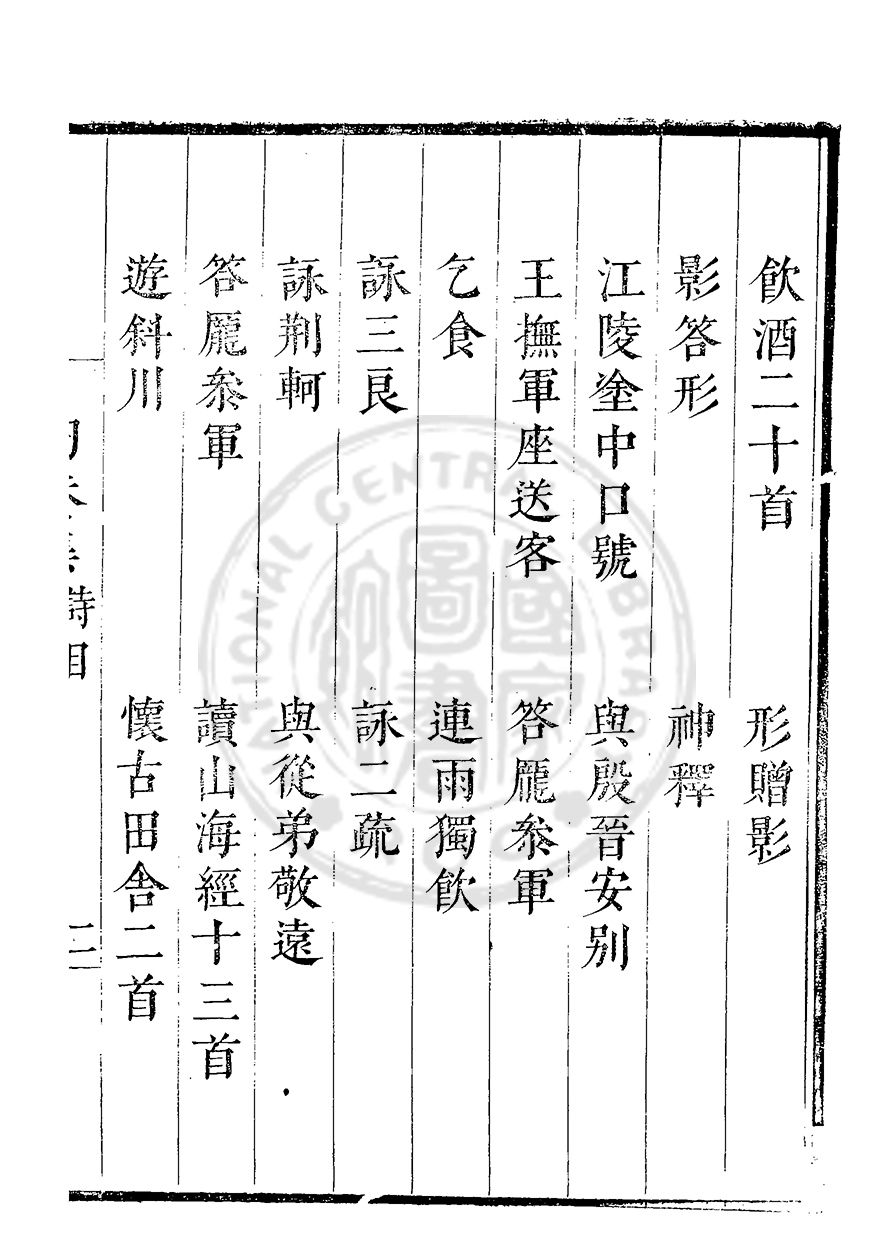 飲酒二十首　形贈影
影答形　神釋
江陵塗中口號　與殷晉安別
王撫軍座送客　答龎叅軍
乞食　連雨獨飲
詠三良　詠二疏
詠荆軻　與從弟敬遠
答龎叅軍　讀山海經十三首
遊斜川　懷古田舍二首
詩目　二